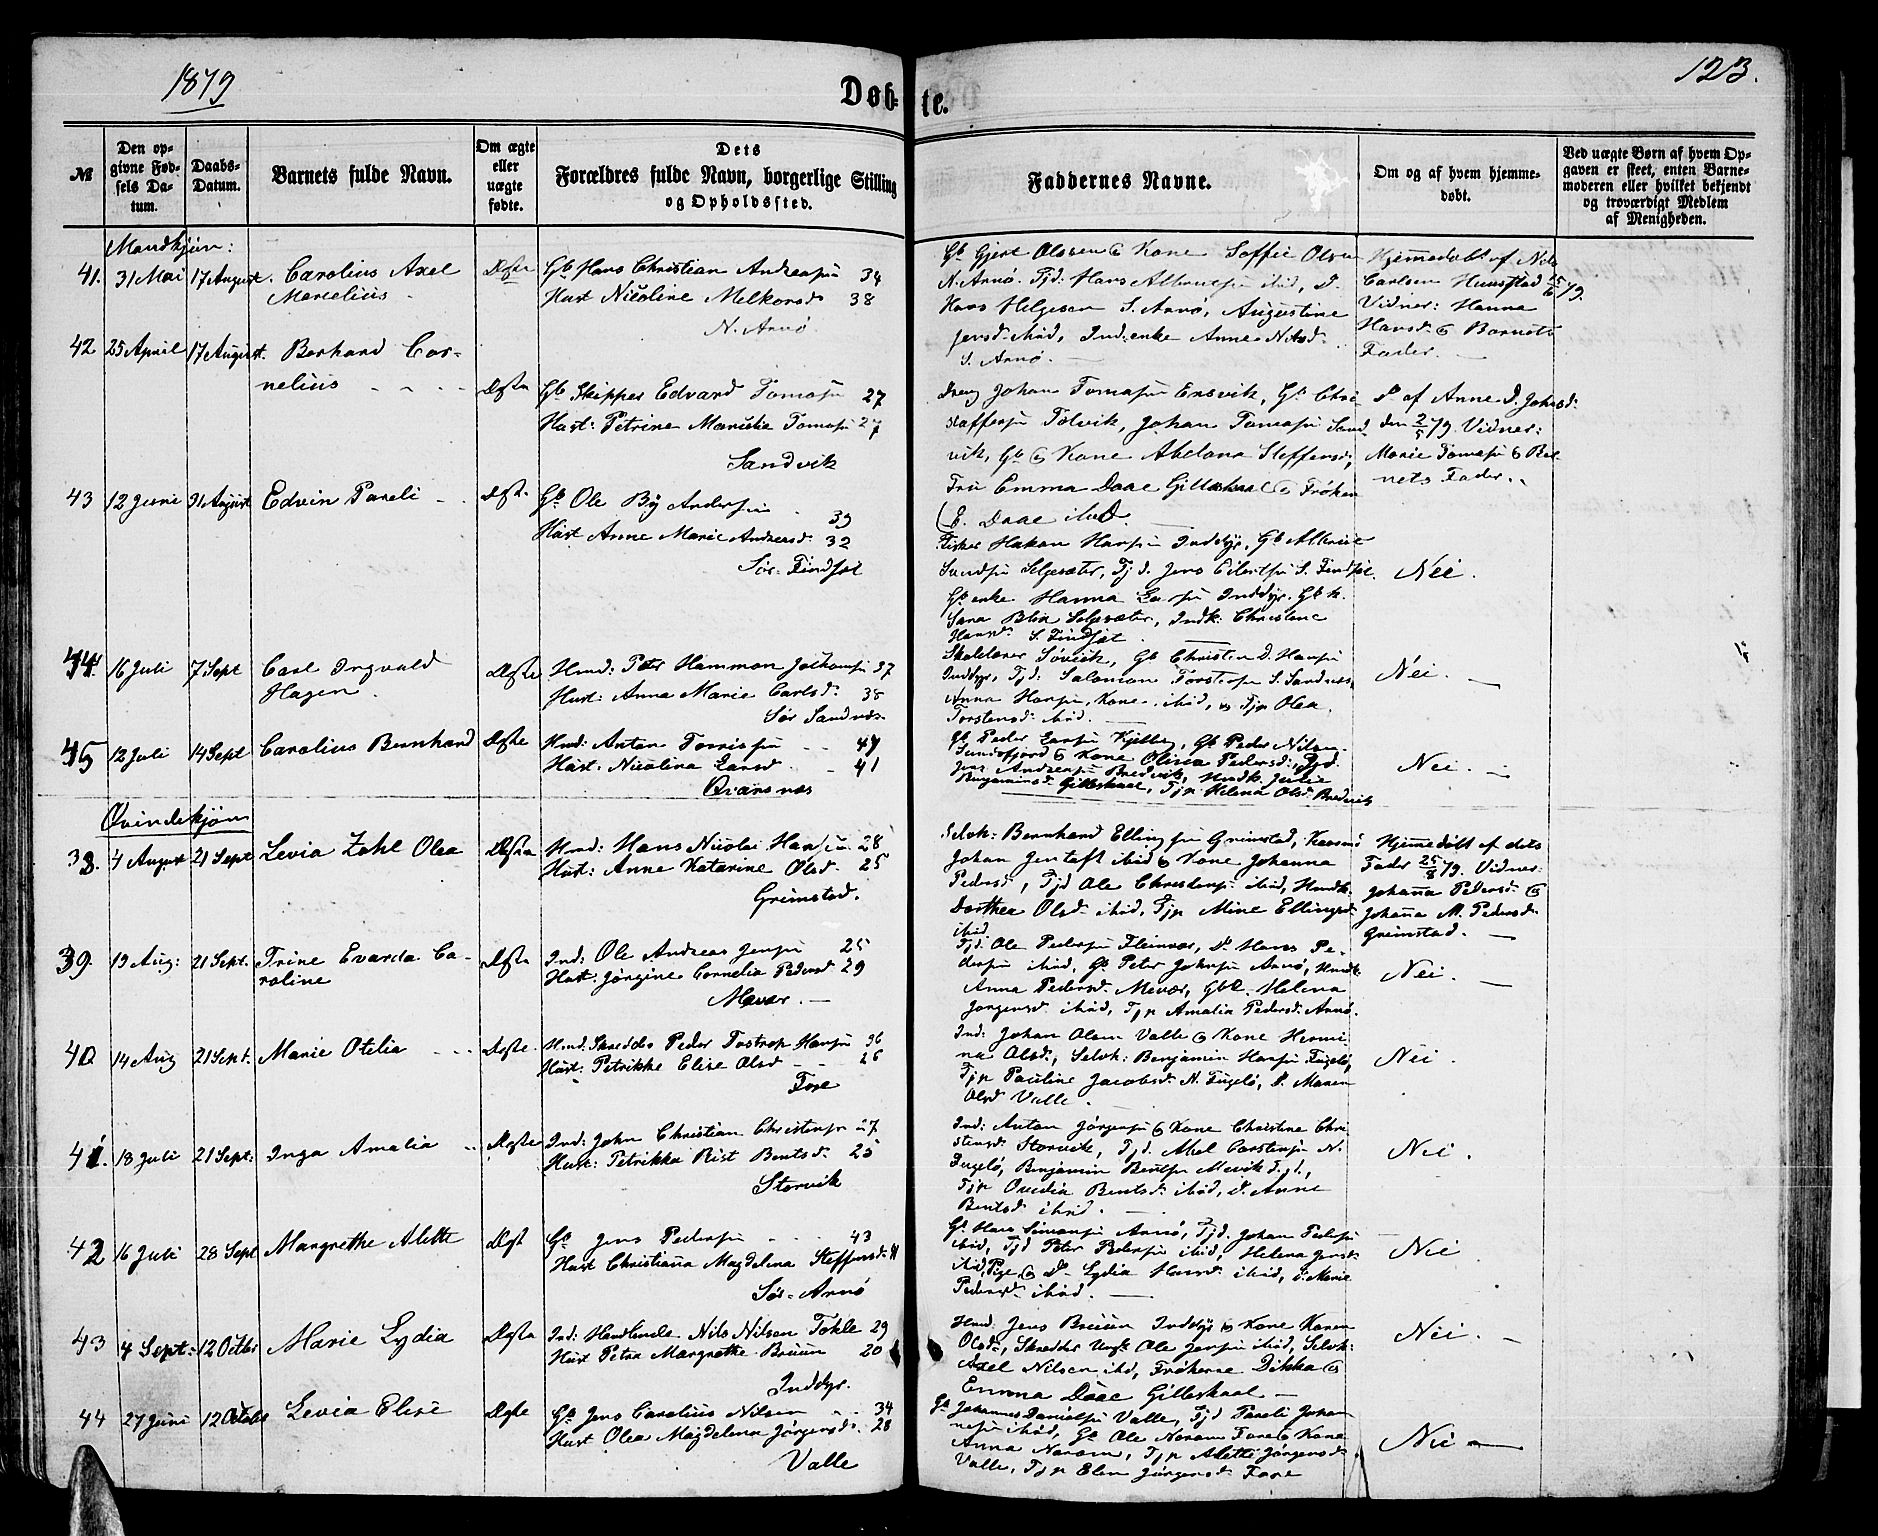 1879
Døb-
te.
123.
№
Den op-
givne Fød-
sels Da-
tum.
Daabs-
Datum.
Barnets fulde Navn.
Om ægte
eller
uægte
fødte.
Dets
Forældres fulde Navn, borgerlige Stilling
og Opholdssted.
Faddernes Navne.
Om og af hvem hjemme-
døbt.
Ved uægte Børn af hvem Op-
gaven er skeet, enten Barne-
moderen eller hvilket bekjendt
og troværdigt Medlem
af Menigheden.
Mandkjøn:
41. 31 Mai 17 August. Carolius Axel
Marselius
Ægte
Gb. Hans Christian Andreasen 34
Hust Nicoline Melkorsd 38
N. Arnø.
Gb. Gjert Olssen & Kone Soffie Olsen
N. Arnø. Tjd: Hans Albrutsen ibid, D.
Hans Helgesen S. Arnø, Augustine
Jensd. ibid, Ind.enke Anne Nilsd.
S. Arnø.
Hjemmedøbt af Nils
Carlsen Hunstad 15/6 79.
Vidner: Hanna
Hansd. & Barnets
Fader.
42. 25 April 17 August. Berhard Cor-
nelius
Ægte
Gb Skipper Edvard Tomasen 27
Hust: Petrine Marselie Tomasen 27
Sandvik
Dreng Johan Tomasen Ensvik, Gb. Chri-
stoffersen Tolvik, Johan Tomasen Sand-
vik, Gb & Kone Abelona Steffensd,
Fru Emma Daae Gilleskaal & Frøken
E. Daae ibid.
D. af Anne D. Johnsd.
den 2/5 79. Vidner:
Marie Tomasen & Bar-
nets Fader.
43 12 Juni 31 August Edvin Pareli
Ægte
Gb Ole By Andersen 39
Hust Anne Marie Andersd. 32
Sør. Findset
Fisker Hakon Hansen Inddyr, Gb Albrigt
Sandsen Selgesæter, Tjd. Jens Eilertsen S. Findset.
Gb enke Hanna Larsen Inddyr. Gb k.
Sara Blix Selgesæter, Indk: Christene
Hansd. S. Findset.
Nei.
44. 16 Juli 7 Sept Carl Ingvald
Hagen.
Ægte
Hmd: Peter Hammon Joakimsen 37
Hust: Anna Marie Carlsd. 38
Sør Sandnæs.
Skolelærer Søvik, Gb Christen D. Hansen
Inddyr, Tjd: Salomon Torstensen S. Sandnæs,
Anna Hansen, Kone ibid, & Tjp Olea
Torstensd. ibid.
Nei.
45 12 Juli 14 Sept Carolius Bernhard
Ægte
Hmd: Antan Torrissen 47
Hust: Nicolina Larsd 41
Qvarsnæs
Gb Peder Larsen Kjelling, Gb Peder Nilsen
Sundsfjord & Kone Olivia Pedersd., Tjd.
Jens Andreasen Bredvik, Hmdk. Julie
Benjaminsd Gilleskaal, Tjp Helena Olsd. Bredvik
Nei.
Qvindekjøn
38. 4 August 21 Sept Levia Zahl Olea
Ægte
Hmd: Hans Nicolai Hansen 28
Hust: Anne Katarine Olsd. 25
Grimstad.
Selvk: Bernhard Ellingsen Grimstad, Kaarmd
Johan Jentoft ibid & Kone Johanna
Pedersd, Tjd Ole Christensen ibid, Hmdk.
Dorthea Olsd. ibid, Tjp Mine Ellingsd.
ibid.
Hjemmedøbt af dets
Fader 25/8 79. Vidner:
Johanna Pedersd. &
Johanna M. Pedersd.
Grimstad.
39. 19 Aug: 21 Sept. Trine Evarda Ca-
roline
Ægte
Ind: Ole Andreas Jensen 25
Hust: Jørgine Cornelia Pedersd 29
Mevær.
Tjd. Ole Pedersen Fleinvær, D. Hans Pe-
dersen ibid, Gb Peter Johnsen Arnø, Hmdk
Anna Pedersd. Mevær, Gbk. Helena
Jørgensd. ibid, Tjp Amalia Pedersd. Arnø.
Nei.
40 14 Aug 21 Sept. Marie Otelia
Ægte
Hmd. Skredder Peder Tostrop Hansen 36
Hust: Petrikke Elise Olsd 26
Fore
Ind: Johan Olsen Valle & Kone Hermi-
na Olsd., Selvk: Benjamin Hansen Fugelø,
Tjp Pauline Jacobsd. N. Fugelø, D. Maren
Olsd Valle.
Nei.
41. 18 Juli 21 Sept: Inga Amalia
Ægte
Ind: John Christian Christensen 27
Hust: Petrikka Rist Bentsd. 25
Storvik
Ind: Antan Jørgensen & Kone Christine Chri-
stensd. Storvik, Tjd. Abel Carstensen N.
Fugelø, Benjamin Bentsen Mevik Tjd.,
Tjp Ovidia Bentsd. ibid, D. Anne
Bentsd. ibid.
Nei.
42 16 Juli 28 Sept Margrethe Alette
Ægte
Gb Jens Pedersen 43
Hust Christianna Magdelena Steffensd. 41
Sør-Arnø
Gb. Hans Simonsen Arnø, Tjd. Johan Pedersen
ibid, Tjd Peter Pedersen ibid, Helena Jensd.
ibid, Pige & D. Lydia Hansd. ibid, D. Marie
Pedersd. ibid.
Nei
43 4 Sept: 12 Octbr Marie Lydia
Ægte
Ind: Handlende Nils Nilsen Tokle 29
Hust Petra Margrethe Bruun 20
Inddyr.
Hmd: Jens Bruun Inddyr & Kone Karen
Olsd., Skredder Ungk. Ole Jensen ibid, Selvk:
Axel Nilsen ibid, Frøknerne Dikka &
Emma Daae Gilleskaal.
Nei.
44 27 Juni 12 October Levia Elise
Ægte
Gb Jens Carolius Nilsen 34
Hust Olea Magdelena Jørgensd. 28
Valle
Gb. Johannes Danielsen Valle, Tjd Pareli Johan-
nesen ibid, Gb Ole Noram Fore & Kone
Anna Noram, Tjp Alette Jørgensd
Valle, Tjp Elen Jørgensd Fore
Nei